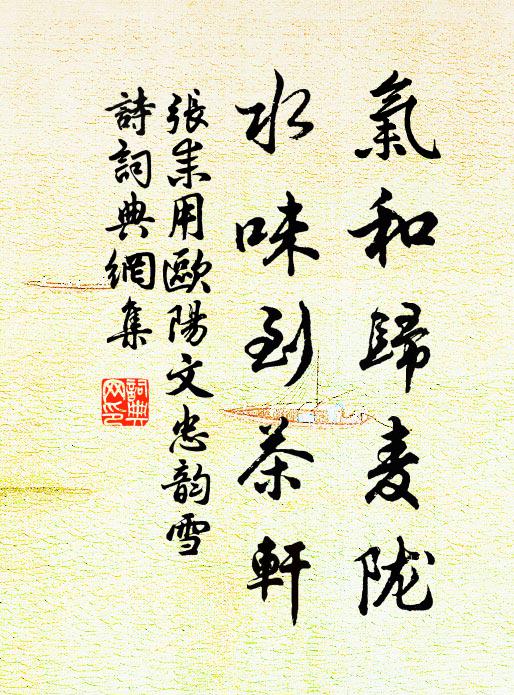 氣和歸麦陇
水味到茶軒
張耒用歐陽文忠韵雪
詩詞典網集
詞典网印